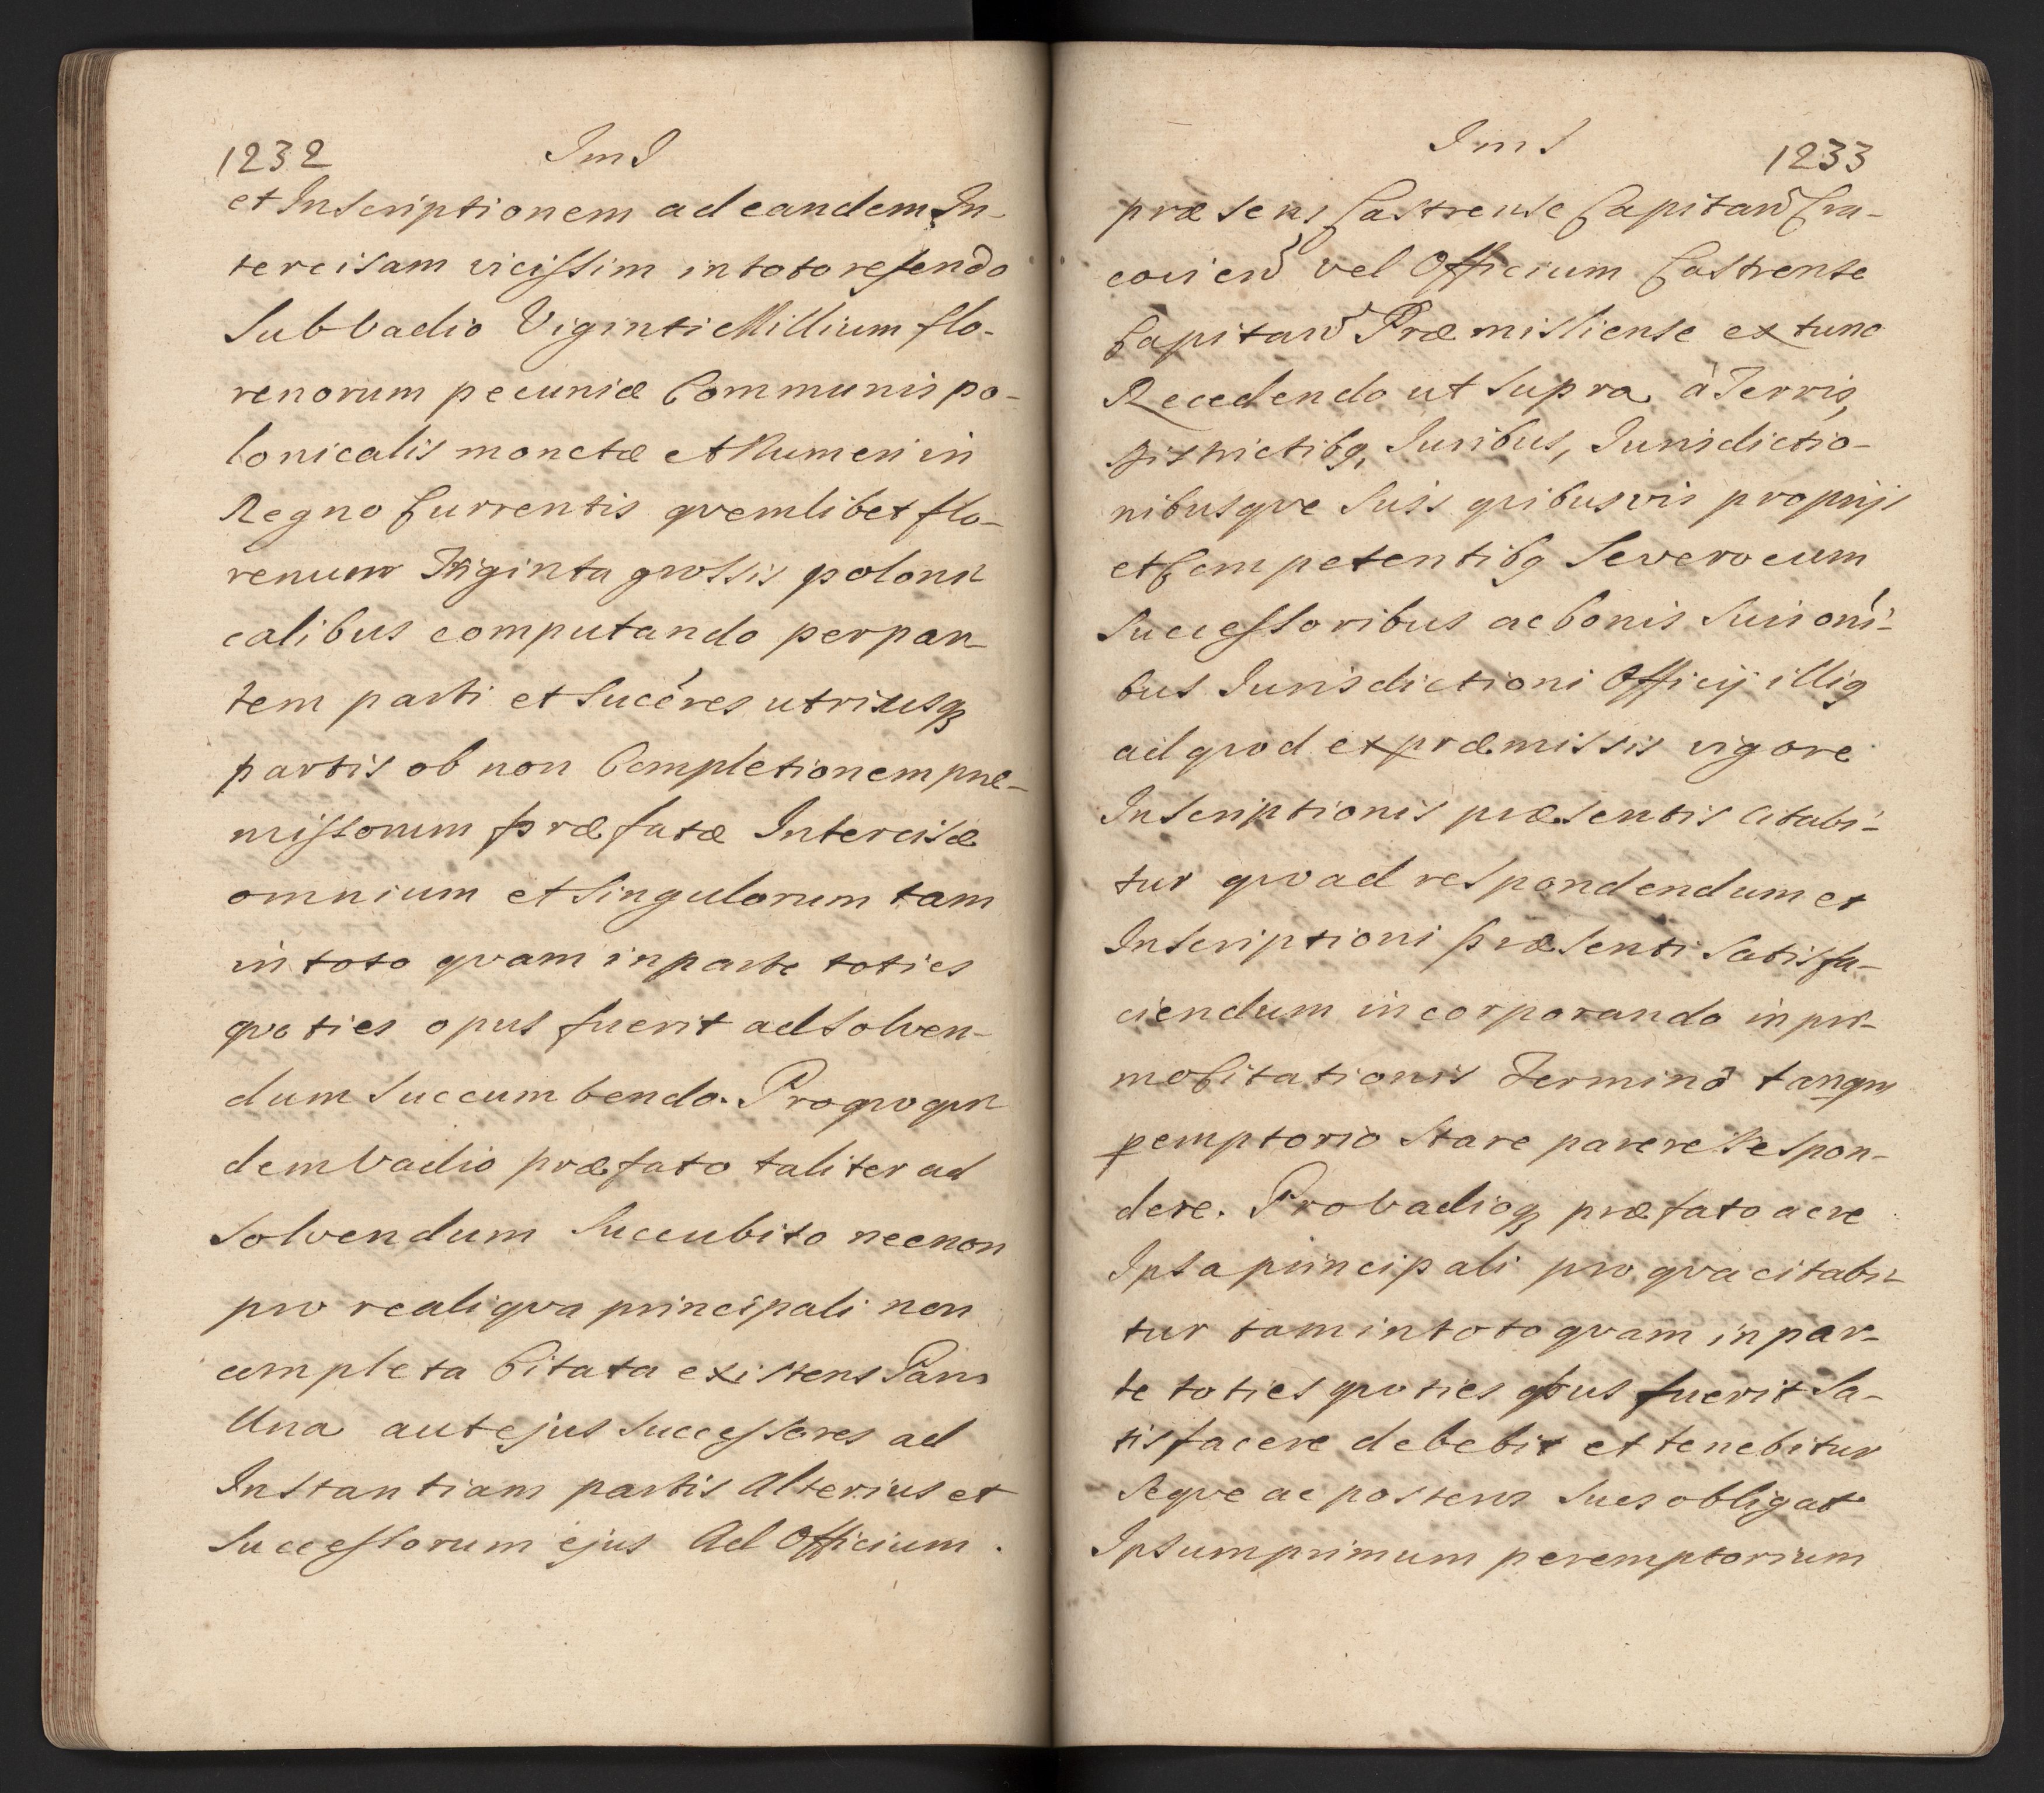 1232
ImI
et Inscriptionem ad eandem In-
tercisam vicissim in toto referendo
Sub Vadio Viginti Millium flo-
renorum pecuniæ Communis po-
lonicalis monetæ et Numeri in
Regno Currentis qvemlibet flo-
renum Triginta grossis poloni
calibus computando per par-
tem parti et Succéres utriusqꝫ
partis ob non Completionem præ-
missorum præfatæ Intercisæ
omnium et Singulorum tam
in toto qvam in parte toties
qvoties opus fuerit ad Solven-
dum Succumbendo. Pro qvo qvi
dem Vadio præfato taliter ad
Solvendum Succubito necnon
pro re aliqva principali non
completa Citata existens Pars
Una aut ejus Successores ad
Instantiam partis Alterius et
Successorum ejus Ad Officium.
ImI
1233
præsens Castrense Capitan̄ Cra-
covien̄ vel Officium Castrense
Capitan̄ Præmisliense ex tunc
Recedendo ut Supra à Terris,
Districtibꝫ, Iuribus, Iurisdictio-
nibusqve Suis qvibusvis proprijs
et Competentibꝫ Se vero cum
Successoribus ac bonis Suis om̄i-
bus Iurisdictioni Officij illiꝫ
ad qvod ex præmissis vigore
Inscriptionis præsentis Citabi-
tur qvo ad respondendum et
Inscriptioni præsenti Satisfa-
ciendum incorporando in pri-
mo Citationis Terminô tanqm
ꝑemptorio Stare parere Respon-
dere. Pro Vadioqꝫ præfato ac re
Ipsa principali pro qva citabi-
tur tam in toto qvam in par-
te toties qvoties opus fuerit Sa-
tisfacere debebit et tenebitur
Seqve ac posteros Suos obligat
Ipsum primum peremptorium